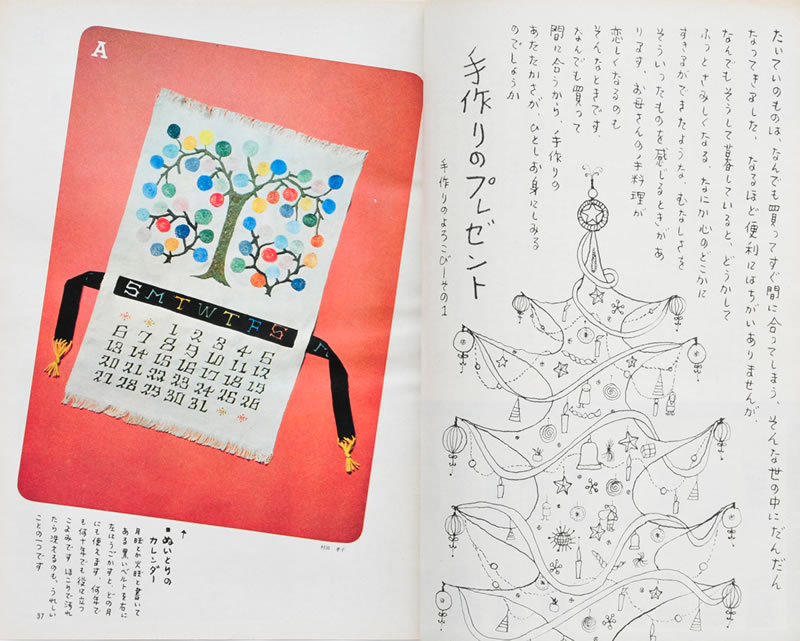 たいていのものは、なんでも買ってすぐ間に合ってしまう、そんな世の中にだんだん
なってきました、なるほど便利にはちがいありませんが、
なんでもそうして暮していると、どうかして
ふっとさみしくなる、なにか心のどこかに
すきまができたような、むなしさを
そういったものを感じるときがあ
ります、お母さんの手料理が
恋しくなるのも
そんなときです、
なんでも買って
間に合うから、手作りの
あたたかさが、ひとしお身にしみる
のでしょうか
手作りのプレゼント
手作りのよろこび—その1
A
S M T W T F S
1 2 3 4 5
6 7 8 9 10 11 12
13 14 15 16 17 18 19
20 21 22 23 24 25 26
27 28 29 30 31
↑
■ぬいとりの
カレンダー
月旺とか火旺と書いて
ある黒いベルトを右に
左にうごかすと、どの月
にも使えます、何年で
も何十年でも役に立つ
こよみです ほこりで汚れ
たら洗えるのも、うれしい
ことの一つです
37